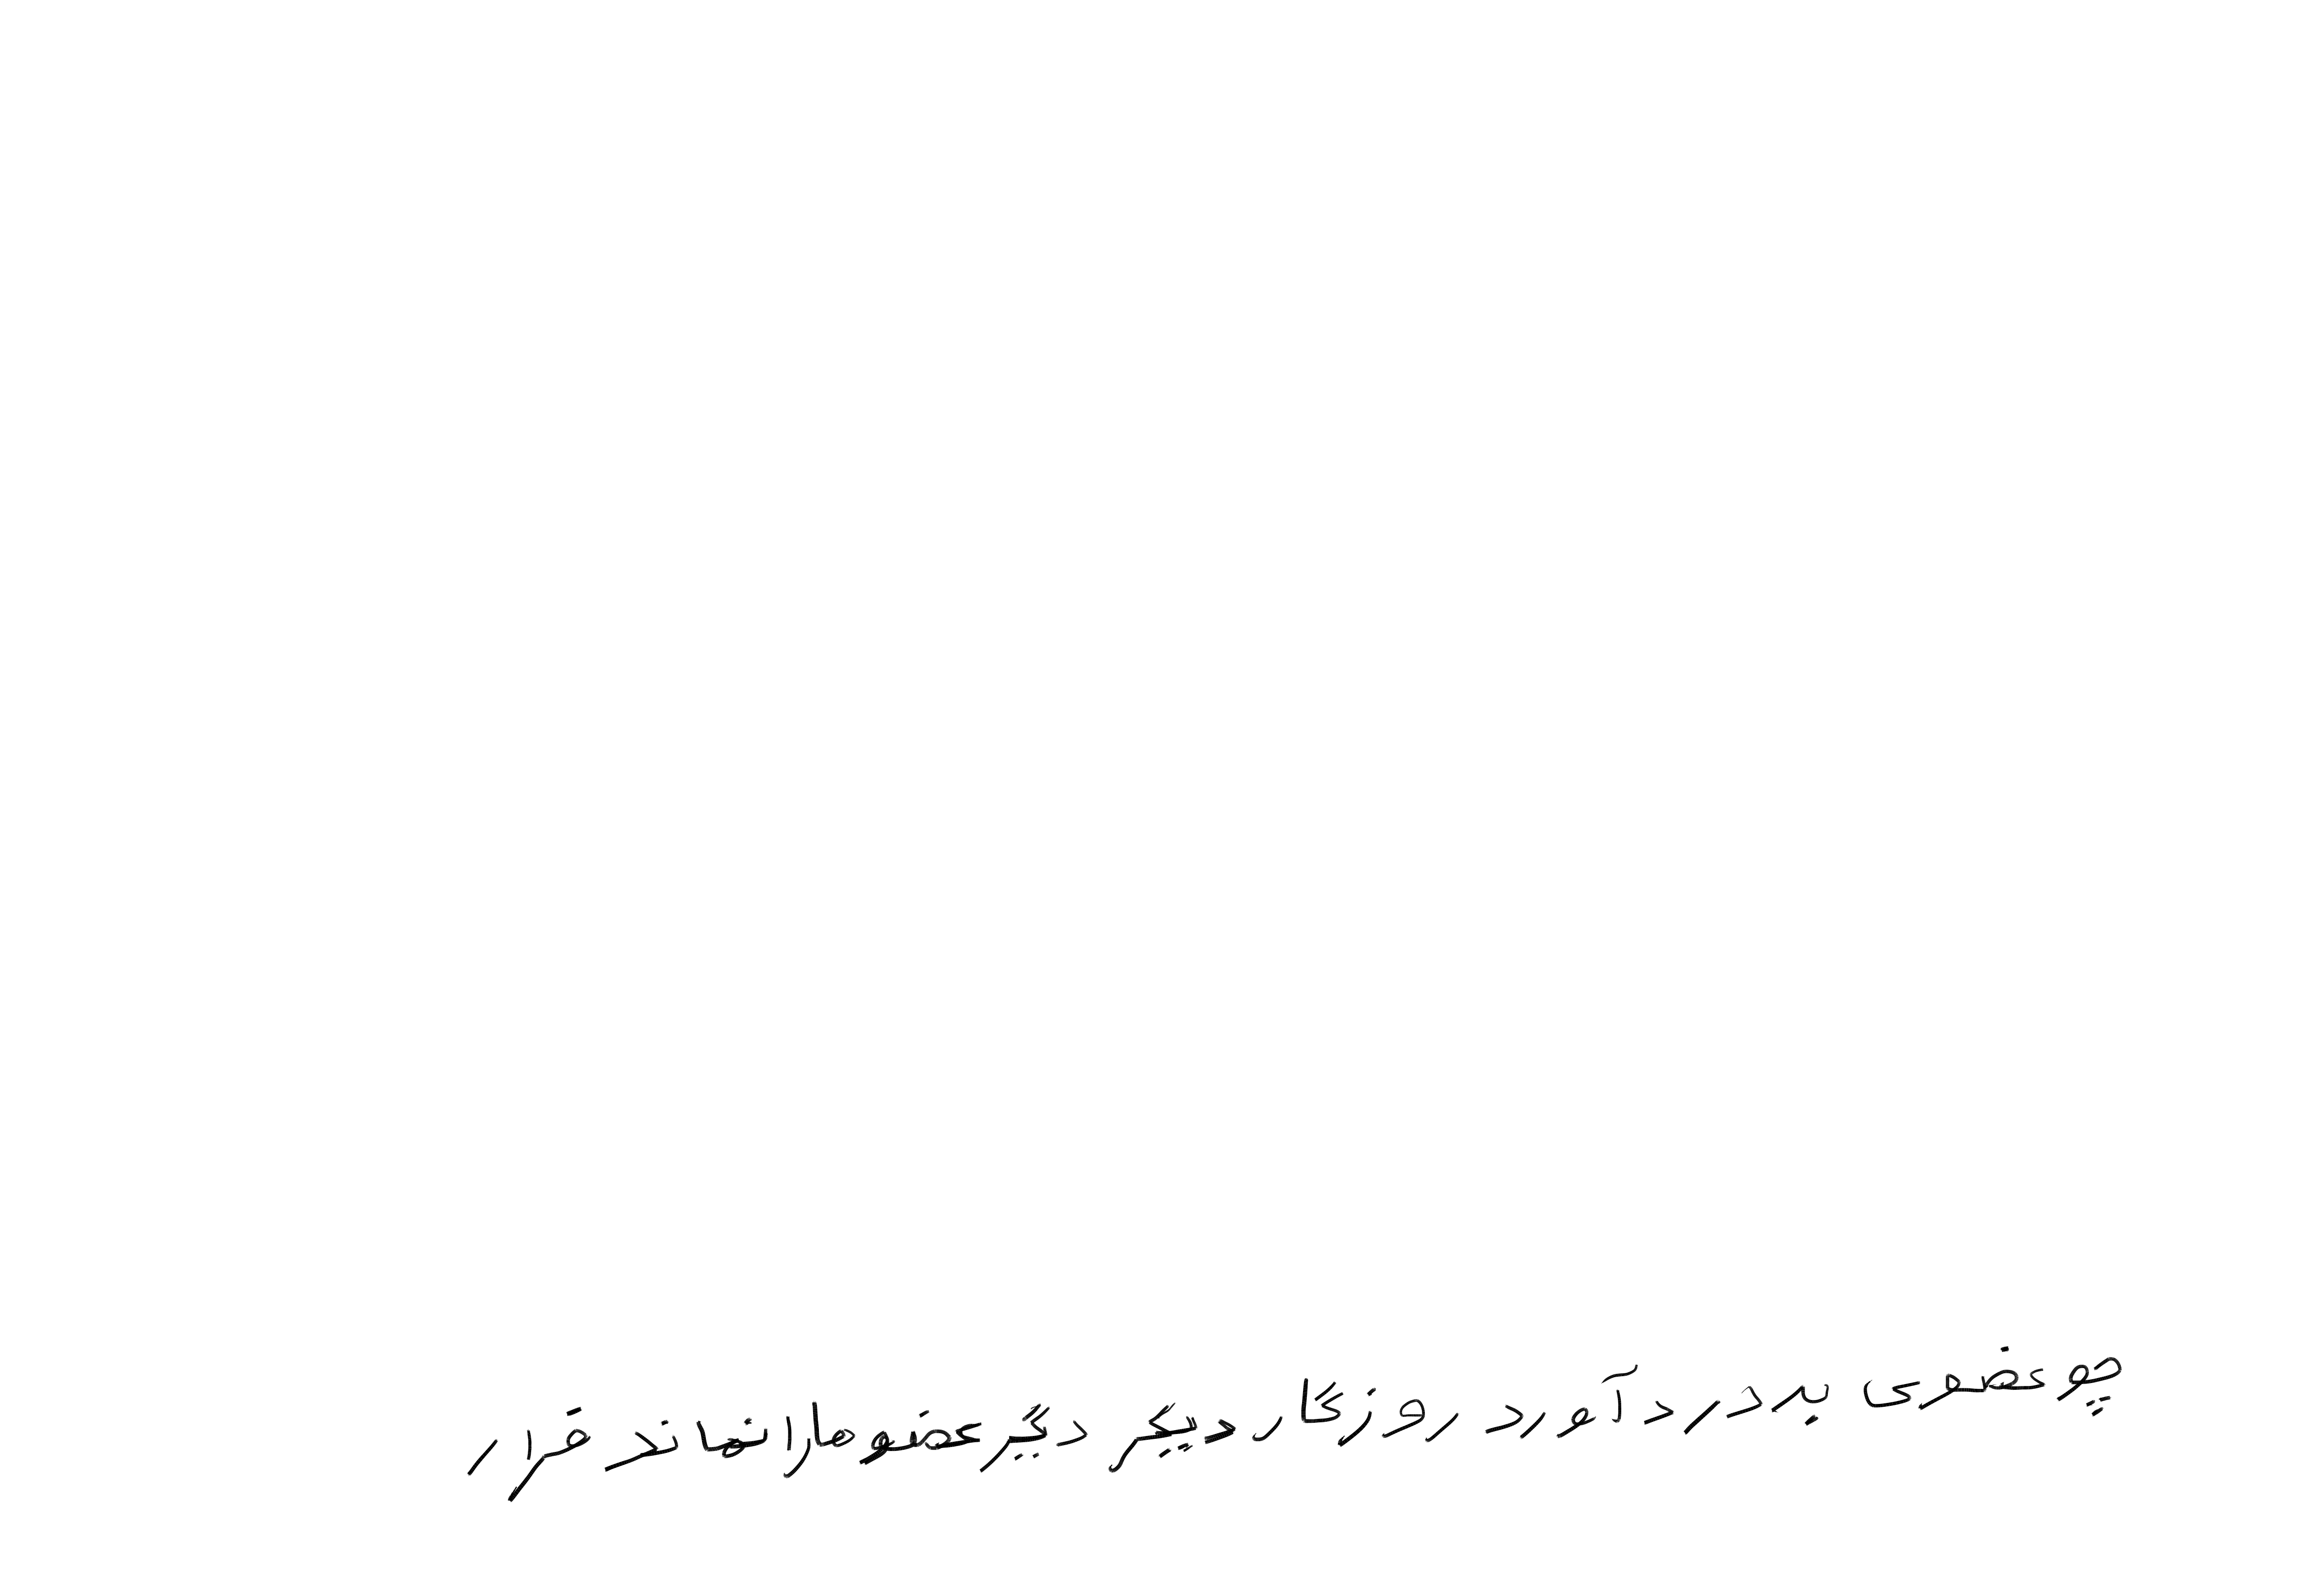 چو عضوی به درد آورد روزگار دیگر دیگر عضوها را نماند قرار